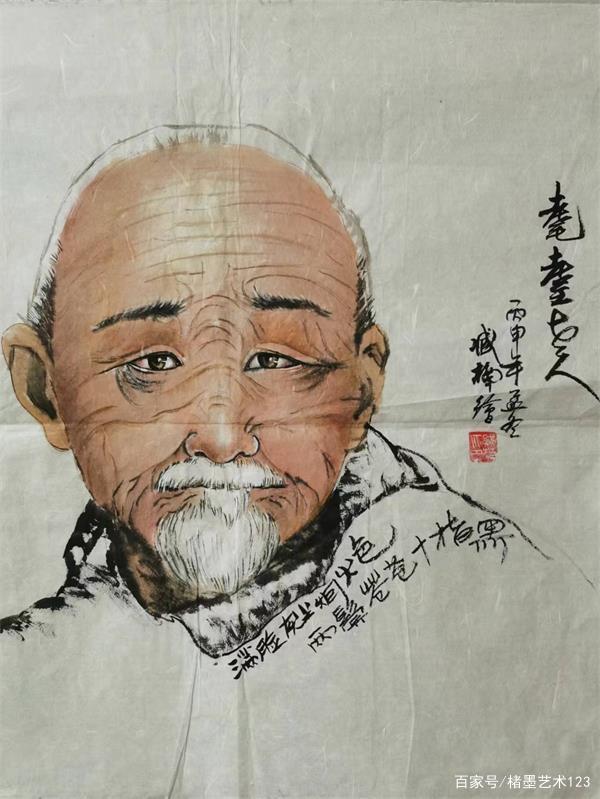 耄耋老人
丙申年孟冬
臧楠繪
满脸火色
两鬓苍苍十指黑
百家号/楮墨艺术123